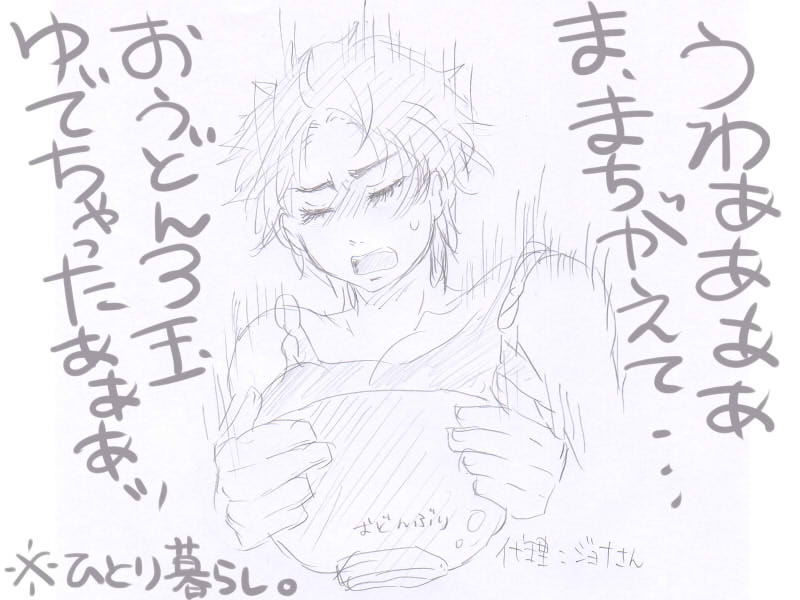 うわぁぁぁぁ
ま、まちがえて...
おうどん3玉、
ゆでちゃったぁぁぁッ
おどんぶり
代理：ジョナさん
※ひとり暮らし。